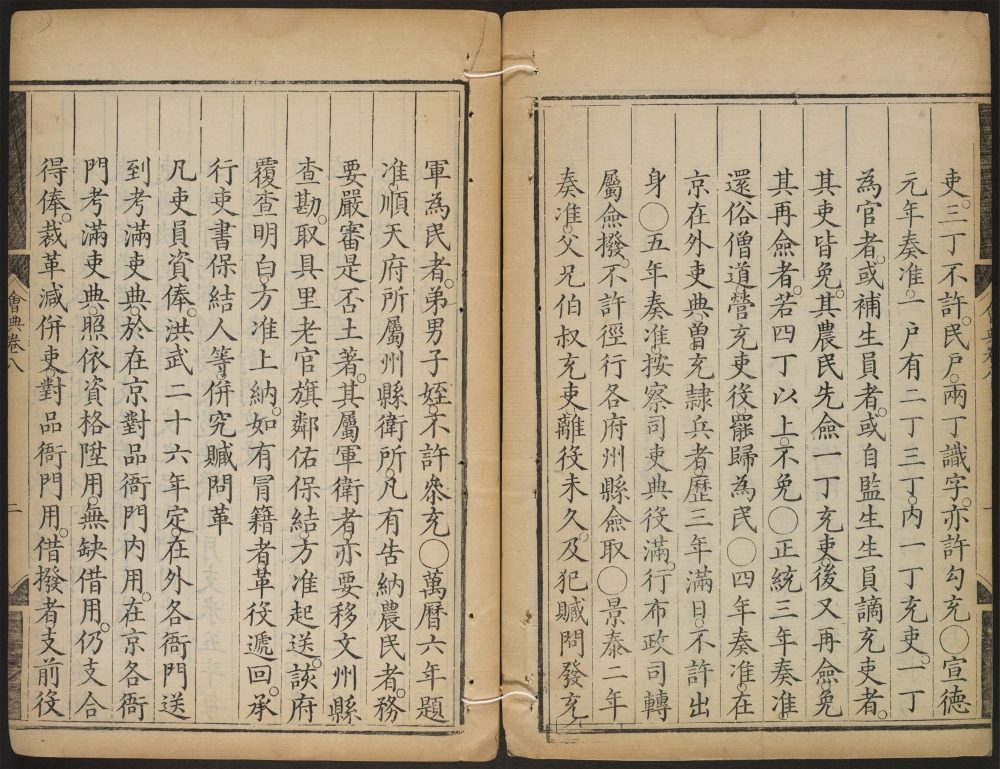 吏。三丁不許。民戶。兩丁識字。亦許勾充〇宣德
元年奏准。一戶有二丁三丁。內一丁充吏。一丁
為官者。或補生員者。或自監生生員謫充吏者。
其吏皆免。其農民先僉一丁充吏。後又再僉免
其再僉者。若四丁以上。不免〇正統三年奏准。
還俗僧道營充吏役。罷歸為民〇四年奏准。在
京在外吏典。曾充隸兵者。歷三年滿日。不許出
身〇五年奏准。按察司吏典役滿。行布政司轉
屬僉撥。不許徑行各府州縣僉取〇景泰二年
奏准。父兄伯叔充吏。離役未久。及犯贓問發充
軍為民者。弟男子姪。不許叅充〇萬曆六年題
准。順天府所屬州縣衛所。凡有告納農民者。務
要嚴審是否土著。其屬軍衛者。亦要移文州縣
查勘。取具里老官旗鄰佑保結。方准起送。該府
覆查明白。方准上納。如有冒籍者。革役遞回。承
行吏書保結人等併究贓問革
凡吏員資俸。洪武二十六年定。在外各衙門送
到考滿吏典。於在京對品衙門內用。在京各衙
門考滿吏典。照依資格陞用。無缺借用。仍支合
得俸。裁革減併吏。對品衙門用。借撥者。支前役
會典卷八
二